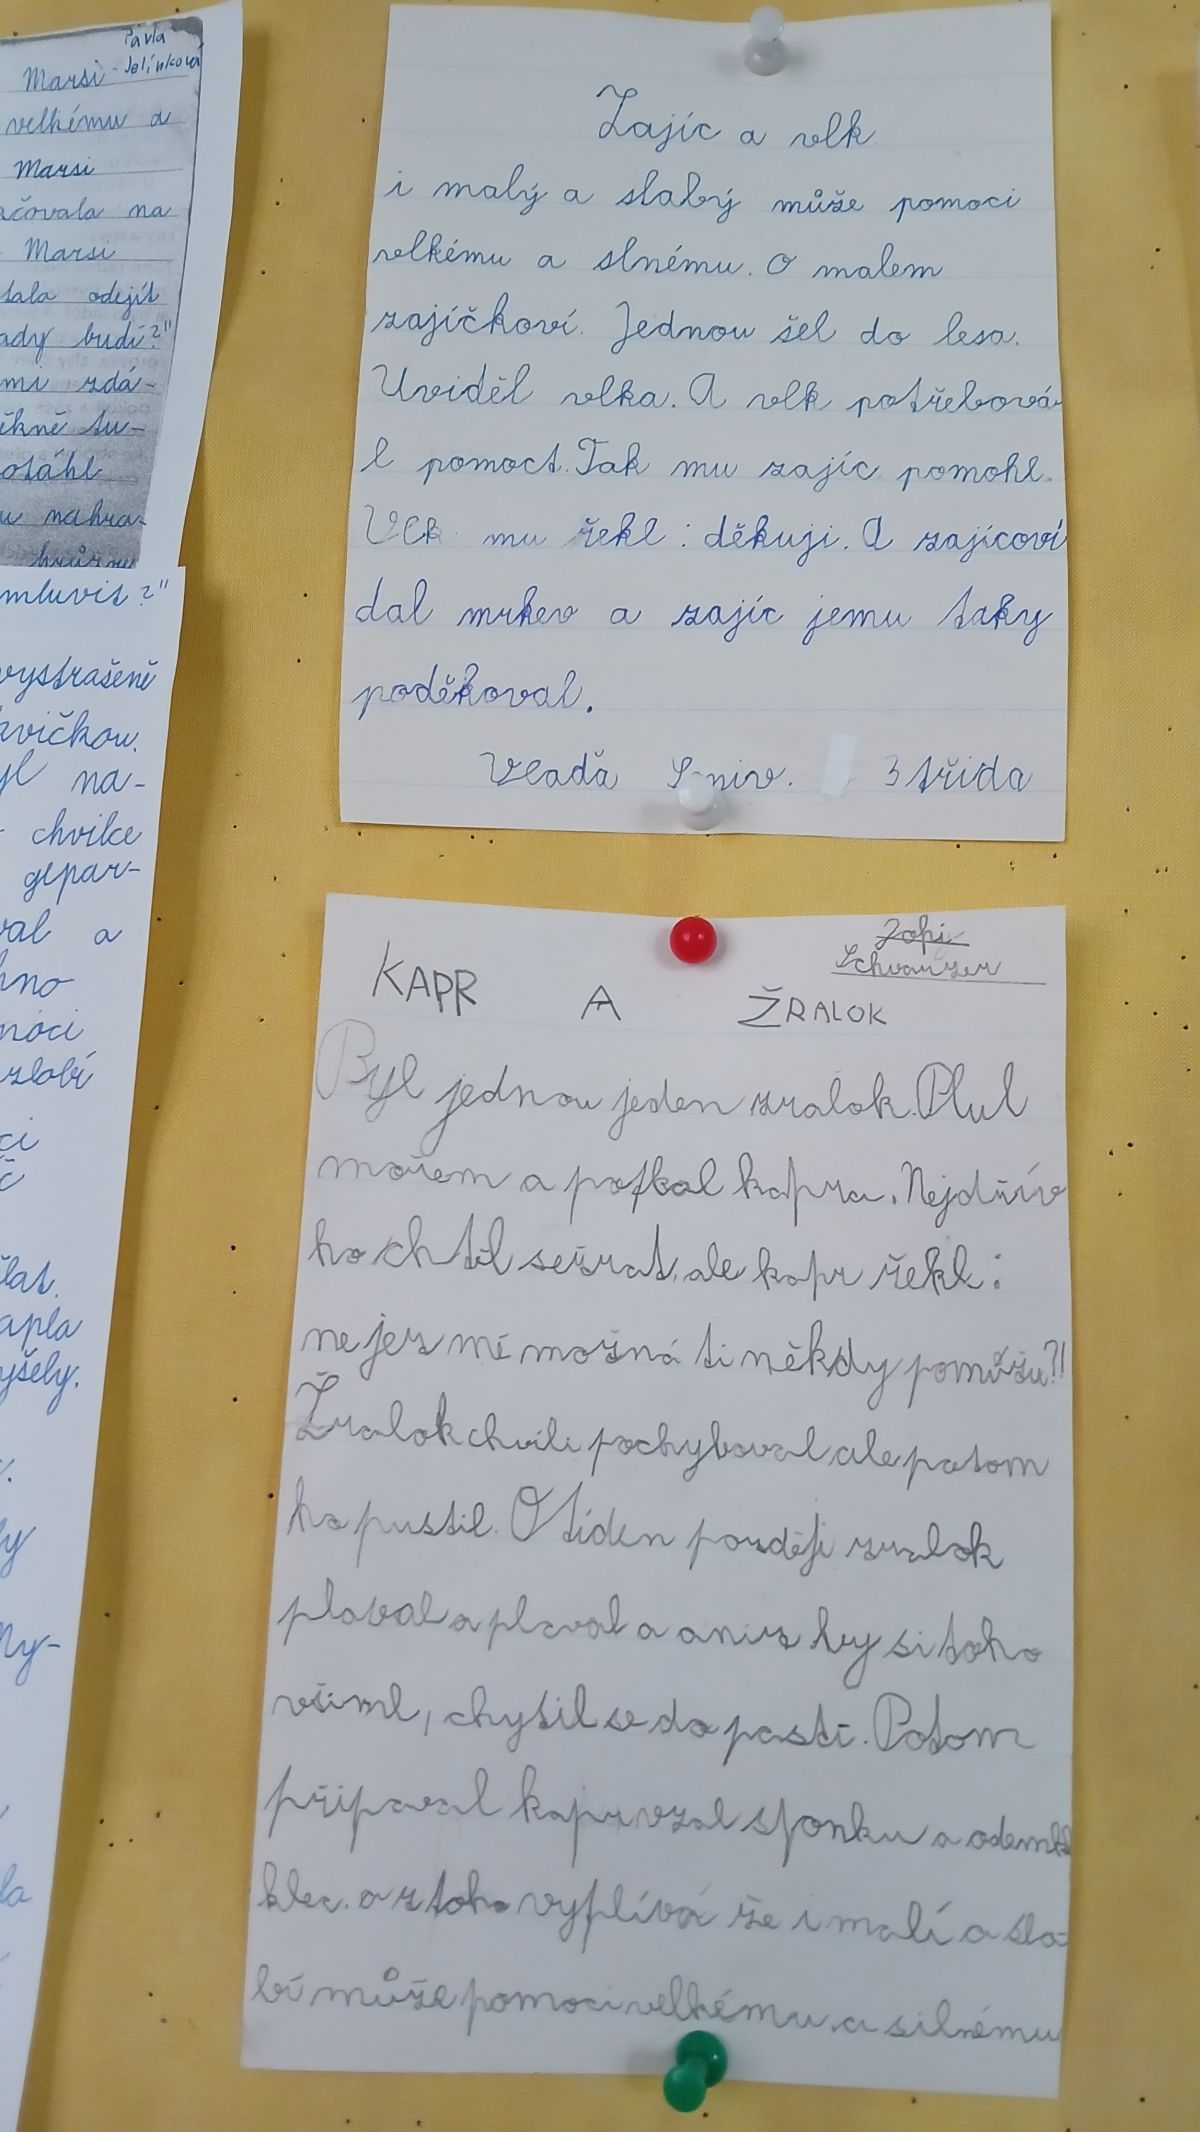 Pavla
Jelínková
Marsi
velkému a
Marsi
ačovala na
Marsi
tala odejít
ady budí?"
mi zdá-
ěkně tu-
otáhl
u nahra-
mluvit?"
vystrašeně
avičkou.
yl na-
chvilce
gepar-
val a
hno
moci
zlobí
ci
č
lat.
apla
yšely.
ly
My-
la
Zajíc a vlk
i malý a slabý může pomoci
velkému a slnému. O malem
zajíčkoví. Jednou šel do lesa.
Uviděl vlka. A vlk potřebová-
l pomoct. Tak mu zajíc pomohl.
Vlk mu řekl: děkuji. A zajícoví
dal mrkev a zajíc jemu taky
poděkoval.
Vlaďa 3 třída
Schvanzer
KAPR A ŽRALOK
Byl jednou jeden zralok. Plul
mořem a potkal kapra. Nejdřív
ho chtěl sežrat, ale kapr řekl:
nejez mě možná ti někdy pomůžu?!
Žralok chvíli pochyboval ale potom
ho pustil. O tíden později zralok
plaval a plaval a aniz by si toho
všiml, chytil se do pastí. Potom
připaval kapr vzal sponku a odemk
klec. a z toho vyplívá že i malí a sla-
bí může pomoci velkému a silnému